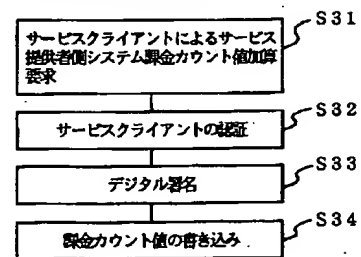 S31
サービスクライアントによるサービス
提供者側システム課金カウント値加算
要求
S32
サービスクライアントの認証
S33
デジタル署名
S34
課金カウント値の書き込み